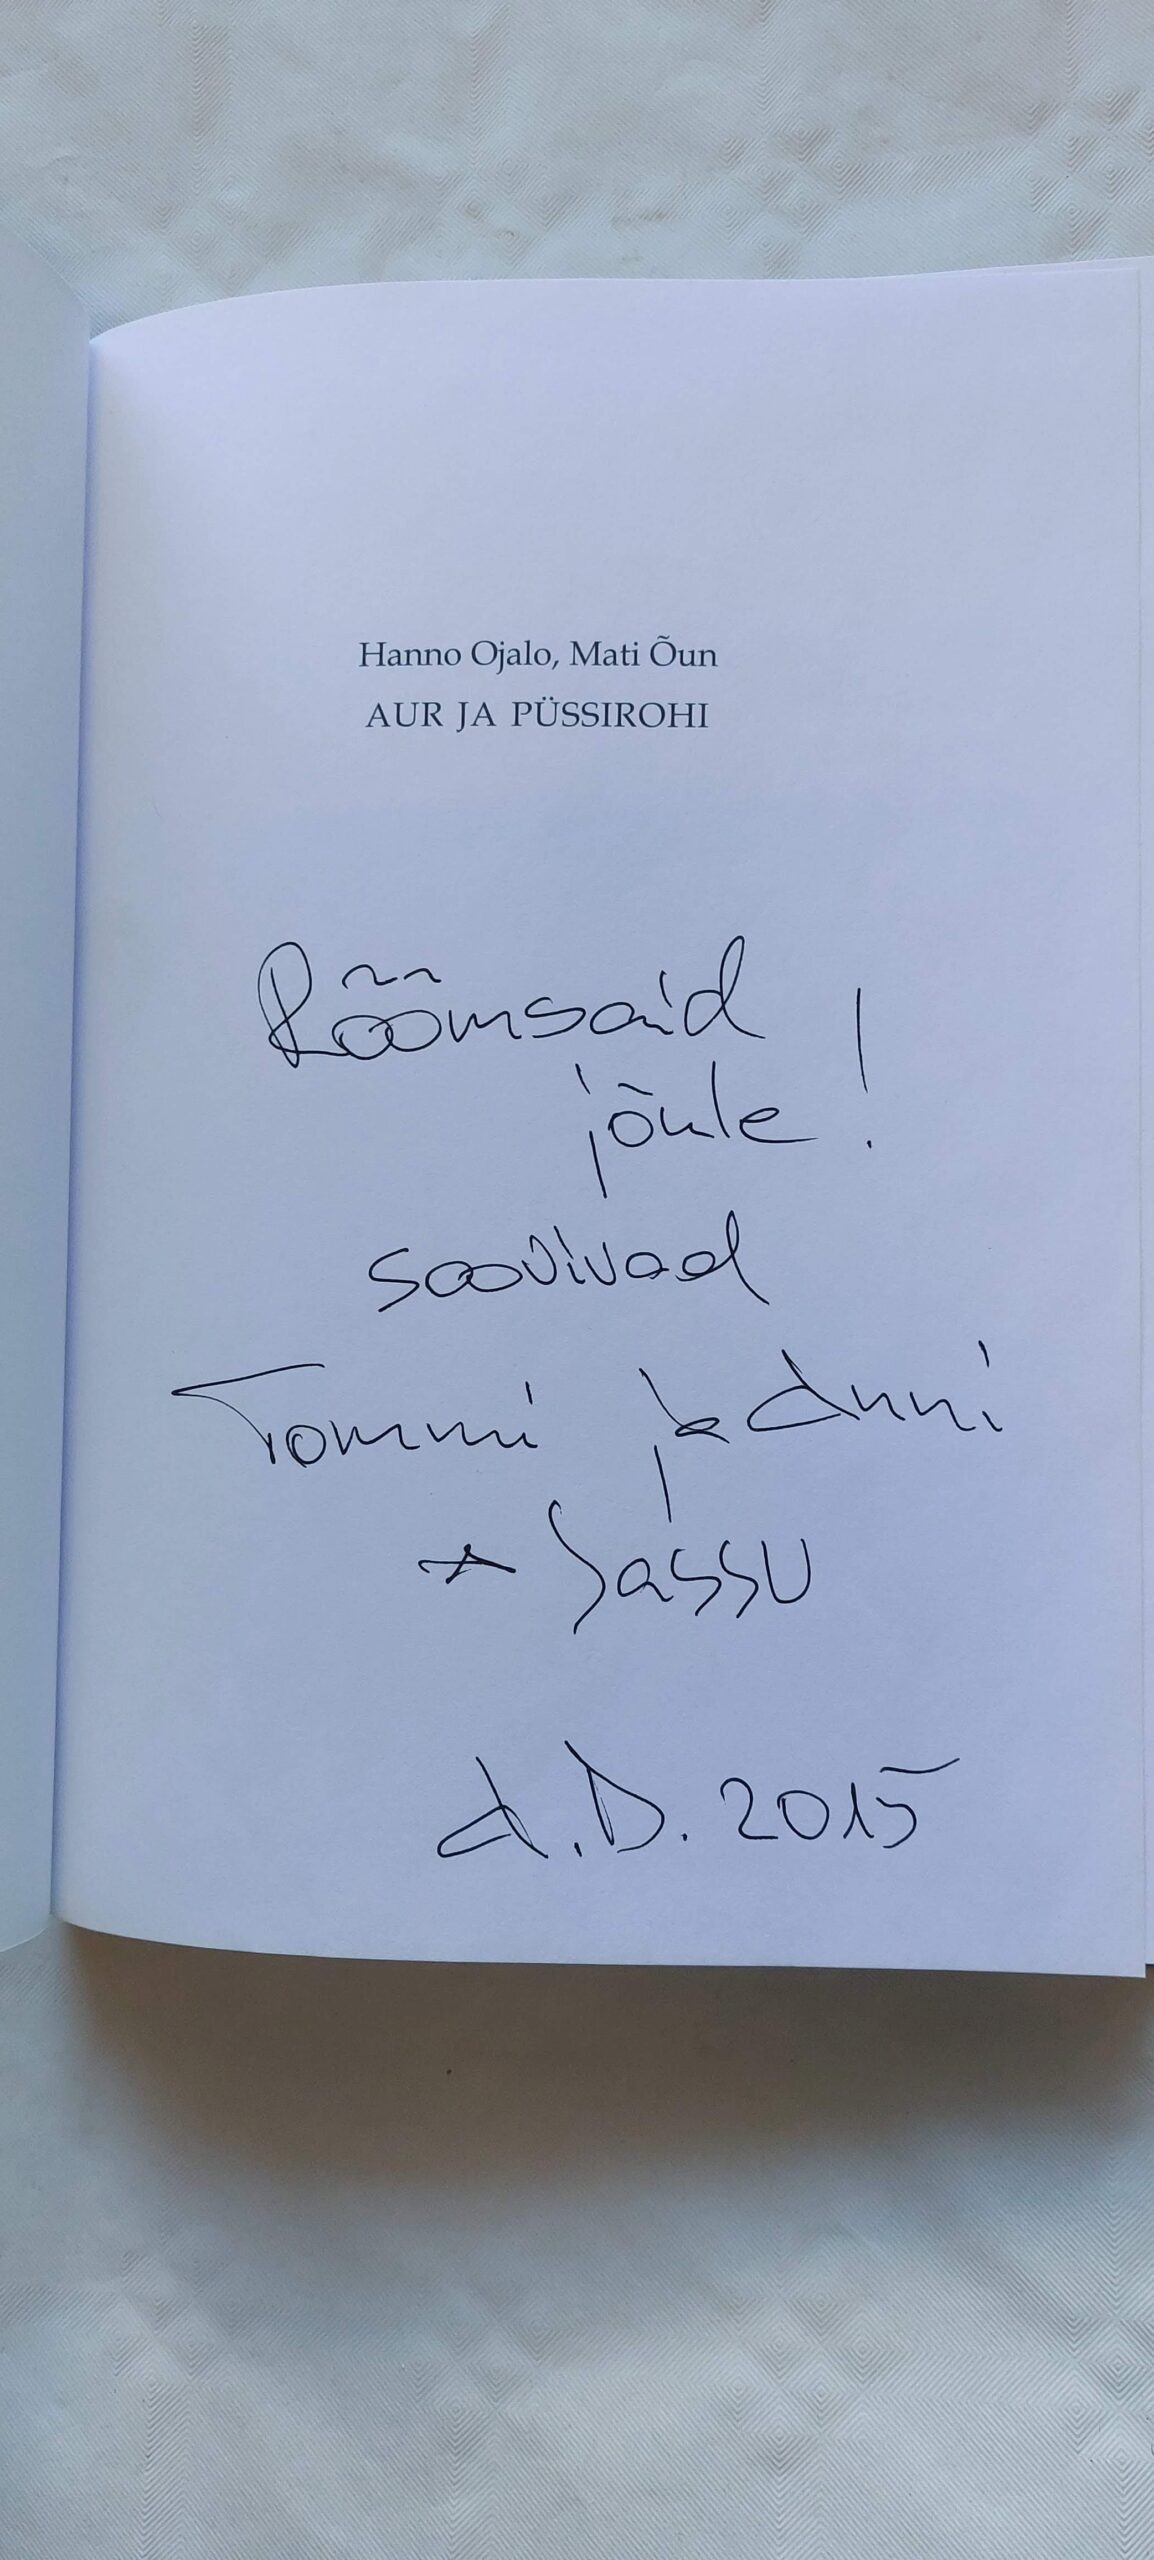 Hanno Ojalo, Mati Õun
AUR JA PÜSSIROHI
Rõõmsaid
jõule!
soovivad
Tommi ja Anni
+ Sassu
A.D. 2015